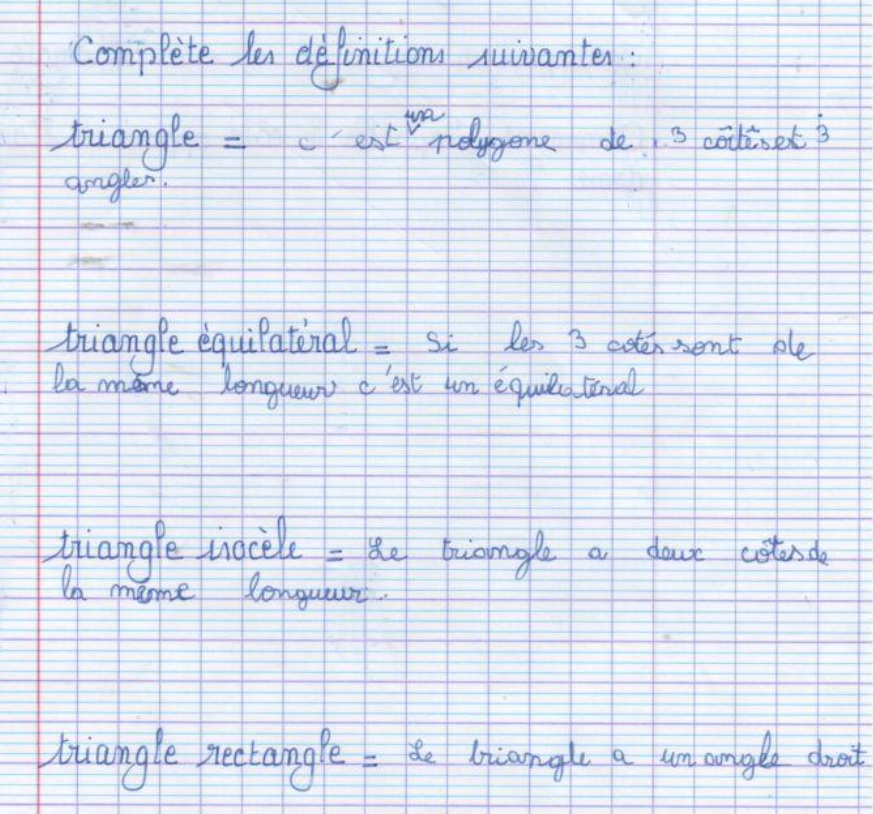 Complète les définitions suivantes :
triangle = c'est un polygone de 3 côtés et 3
angles.
triangle équilatéral = Si les 3 cotés sont de
la même longueur c'est un équilatéral
triangle isocèle = Le triangle a deux côtés de
la même longueur.
triangle rectangle = Le triangle a un angle droit